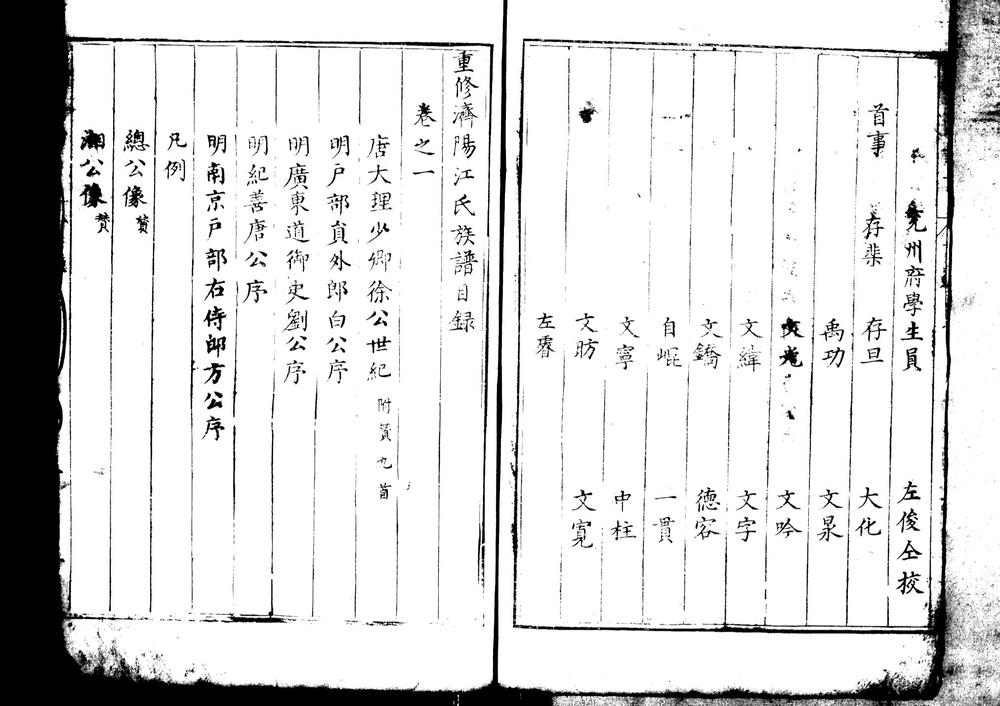 兗州府學生員 左俊仝校
首事 存榘 存旦 大化
禹功 文杲
文光 文吟
文緯 文字
文鐈 德容
自崐 一貫
文寧 中柱
文昉 文寬
左睿
重修濟陽江氏族譜目録
卷之一
唐大理少卿徐公世紀 附賛九首
明戸部員外郎白公序
明廣東道御史劉公序
明紀善唐公序
明南京戸部右侍郎方公序
凡例
總公像 賛
湘公像 賛